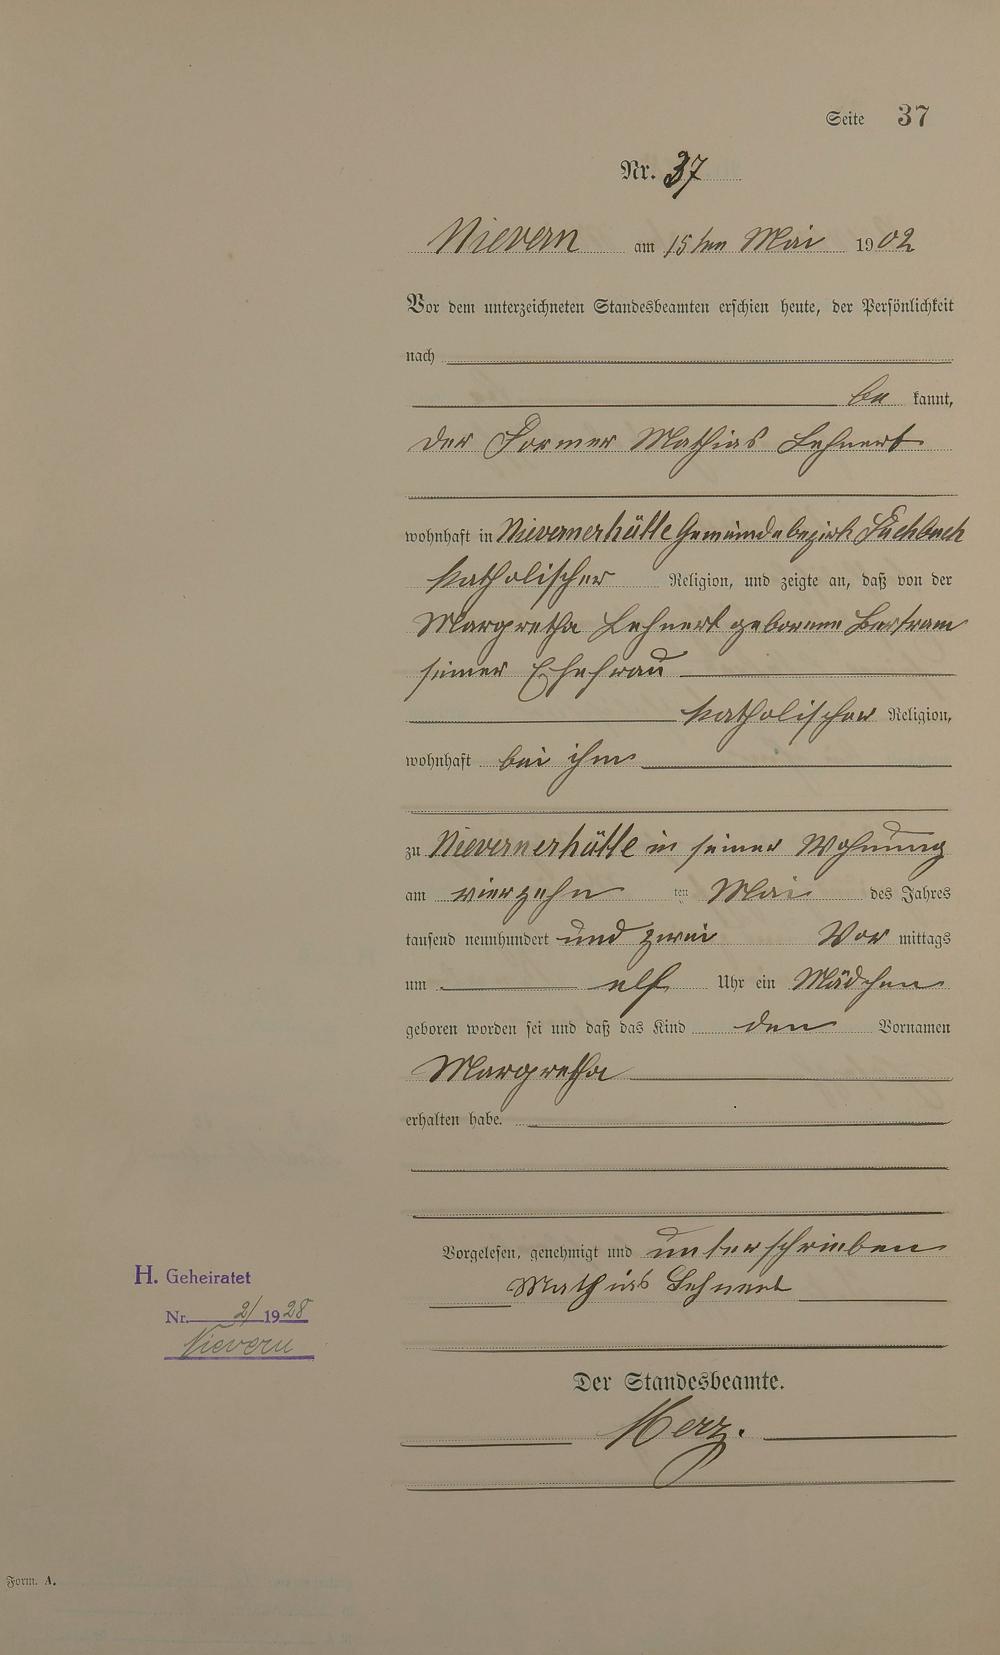 Seite 37
Nr. 37
Nievern am 15ten Mai 1902
Vor dem unterzeichneten Standesbeamten erschien heute, der Persönlichkeit
nach
be kannt,
der Former Mathias Lehnert
wohnhaft in Nievernerhütte Gemeindebezirk Fachbach
katholischer Religion, und zeigte an, daß von der
Margretha Lehnert geborenen Bertram
seiner Ehefrau
katholischer Religion,
wohnhaft bei ihm
zu Nievernerhütte in seiner Wohnung
am vierzehn ten Mai des Jahres
tausend neunhundert und zwei Vor mittags
um elf Uhr ein Mädchen
geboren worden sei und daß das Kind den Vornamen
Margretha
erhalten habe.
Vorgelesen, genehmigt und unterschrieben
Mathias Lehnert
H. Geheiratet
Nr. 2/ 1928
Nievern
Der Standesbeamte.
Merz.
Form. A.